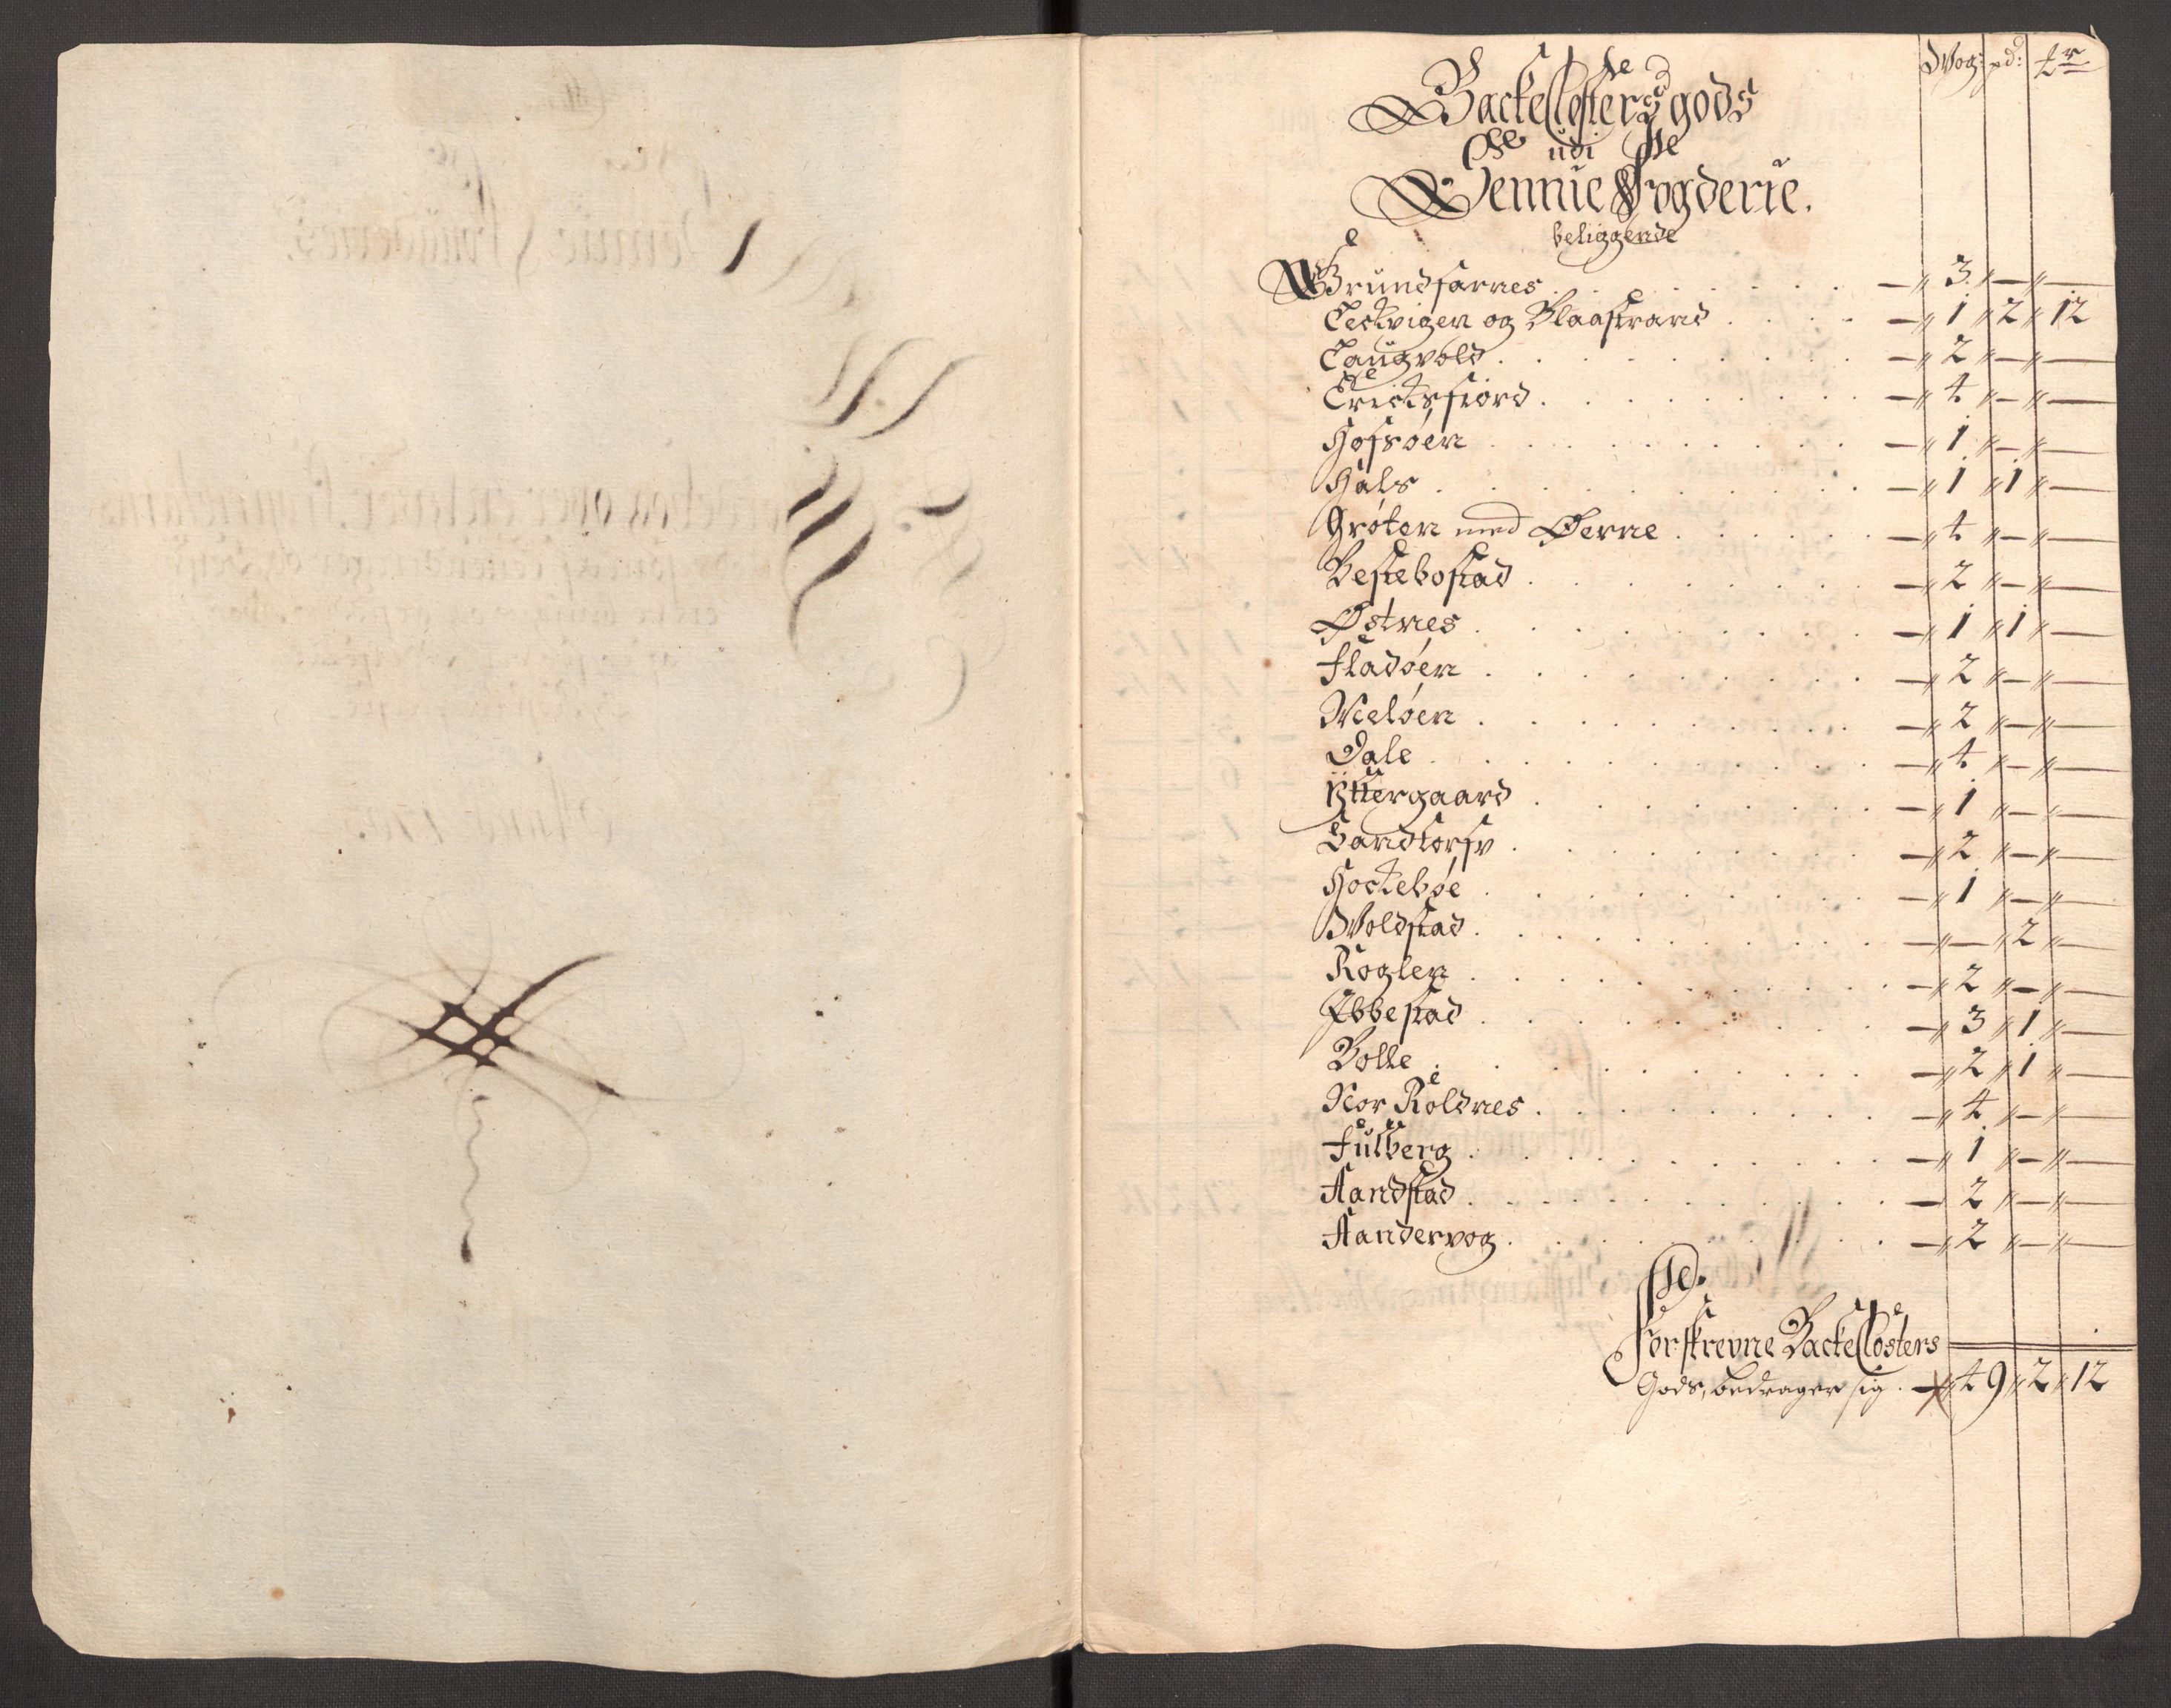 Wog: pd: tr
Backe Closters gods
udi
Sennie Fogderie.
beliggende
Grundfarnes - 3 - -
Leckvigen og Blaastrand - 1 - 2 - 12
Laugvold - 2 - -
Ericksfiord - t - -
Hofsøen - 1 - -
Hals - 1 - 1 -
Grøten med Øerne - t - -
Bestebostad - 2 - -
Østnes - 1 - 1 -
Fladøen - 2 - -
Meløen - 2 - -
Dale - t - -
Yttergaard - 1 - -
Sandtorfv - 2 - -
Hockebøe - 1 - -
Woldstad - - 2 -
Roglen - 2 - -
Ibbestad - 3 - 1 -
Bolle - 2 - 1 -
Nor Roldnes - t - -
Fulberg - 1 - -
Aandstad - 2 - -
Aandervog - 2 - -
Forskrevne Backe Closters
Gods, bedrager sig - t9 - 2 - 12